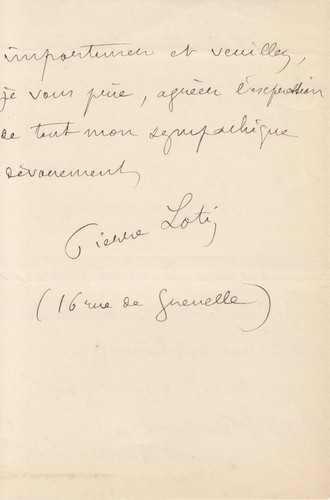 importuner et veuillez,
je vous prie, agréer l'expression
de tout mon sympathique
dévouement
Pierre Loti
(16 rue de Grenelle)